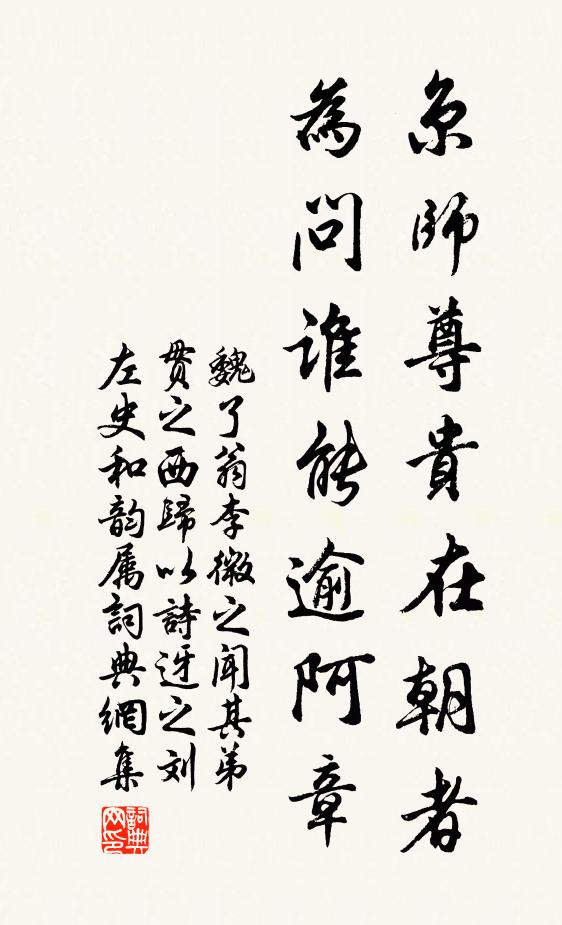 京師尊貴在朝者
為問誰能逾阿章
魏了翁李微之聞其弟
貫之西歸以詩迓之刘
左史和韵属詞典網集
詞典网印